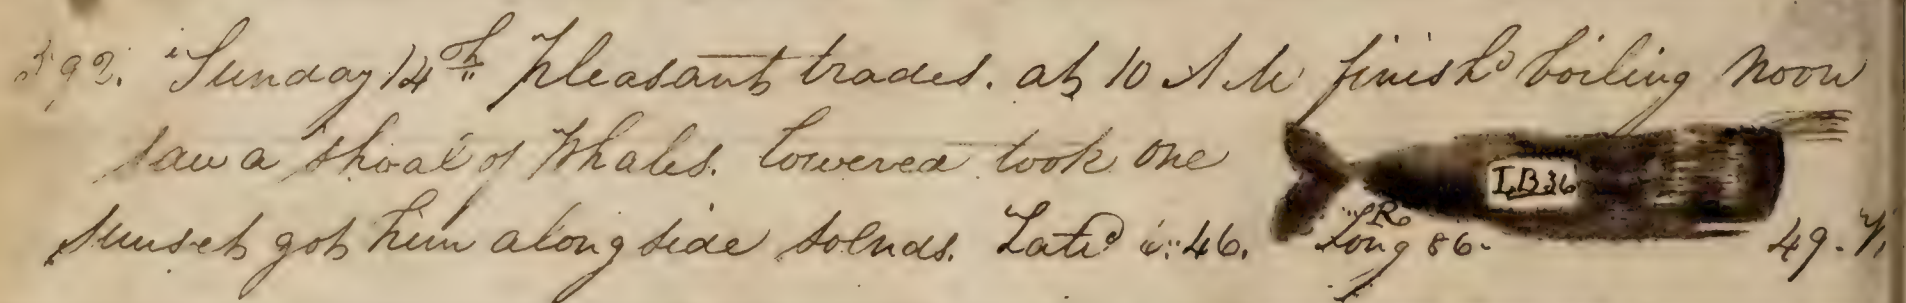 392. Sunday 14th Pleasant trades. at 10 A M finishd boiling Noon
saw a shoal of Whales. lowered took one
LB36
sunset got him along side solnds. Latd 0:46. Long 86- 49. W
Ro